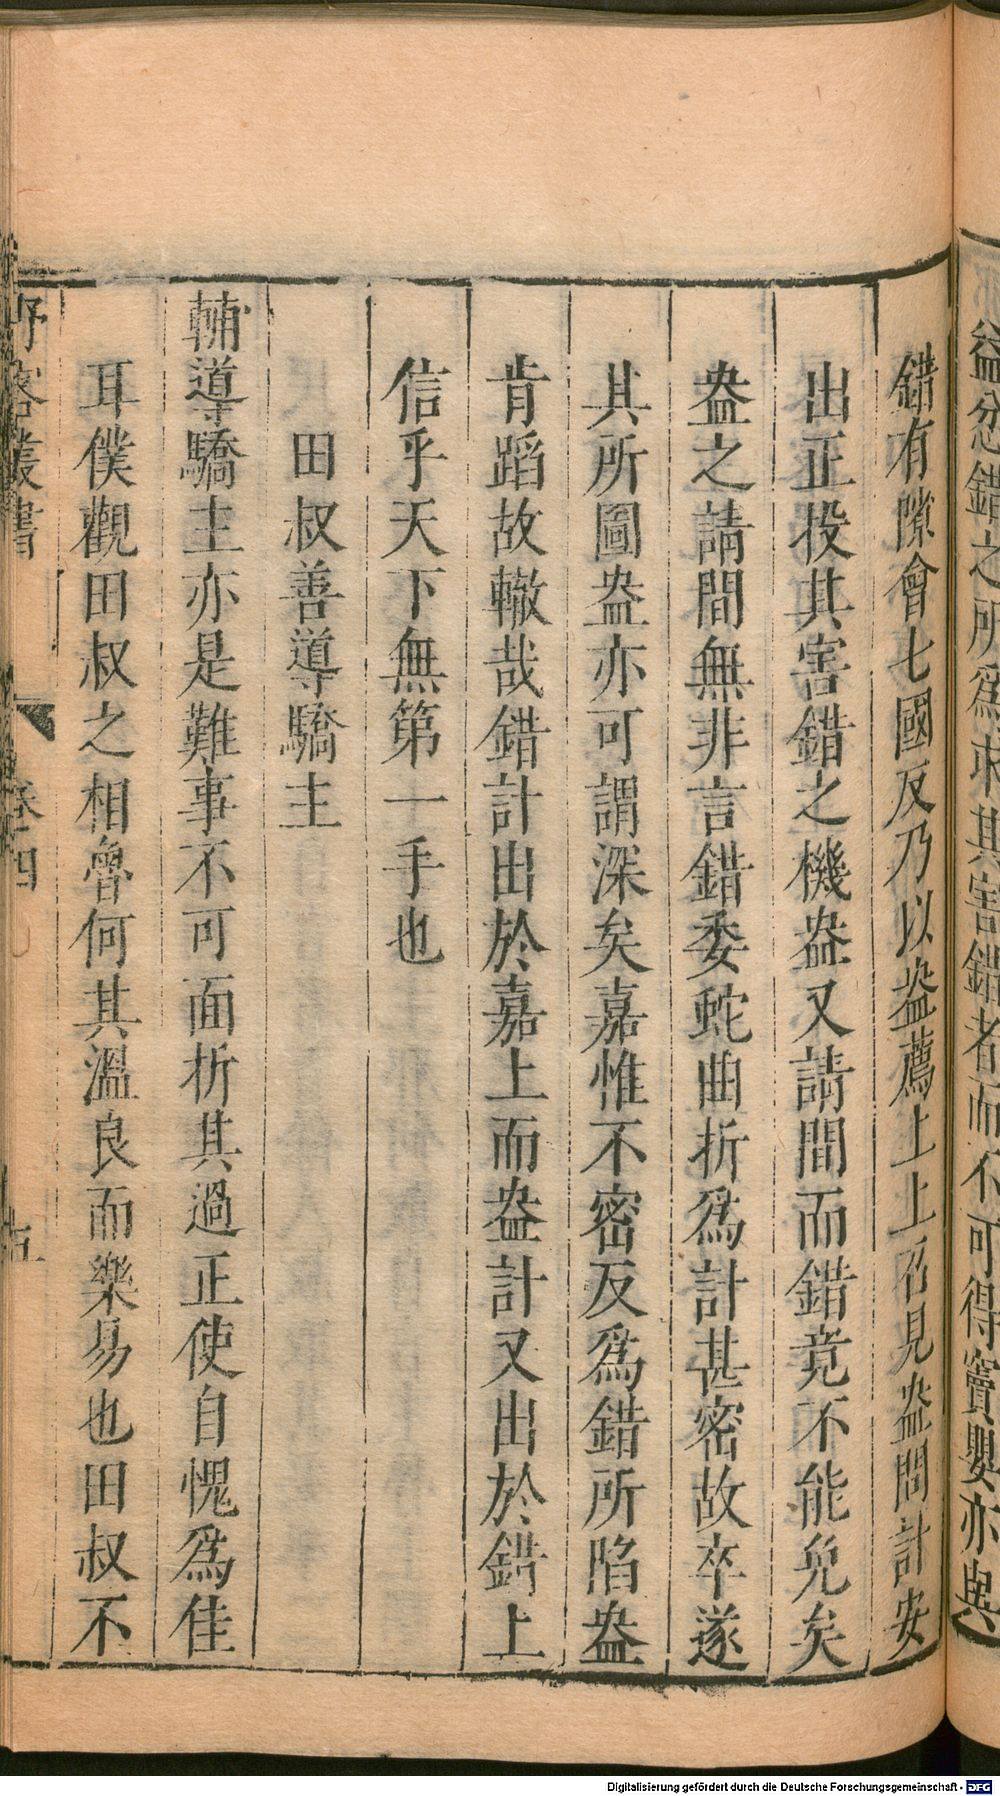 盎忿錯之所爲求其害錯者而不可得竇嬰亦與
錯有隙會七國反乃以盎薦上上召見盎問計安
出正投其害錯之機盎又請間而錯竟不能免矣
盎之請間無非言錯委蛇曲折爲計甚密故卒遂
其所圖盎亦可謂深矣嘉惟不密反爲錯所陷盎
肯蹈故轍哉錯計出於嘉上而盎計又出於錯上
信乎天下無第一手也
田叔善導驕主
輔導驕主亦是難事不可面折其過正使自愧爲佳
耳僕觀田叔之相魯何其溫良而樂易也田叔不
野客叢書 卷四 五
Digitalisierung gefördert durch die Deutsche Forschungsgemeinschaft - DFG